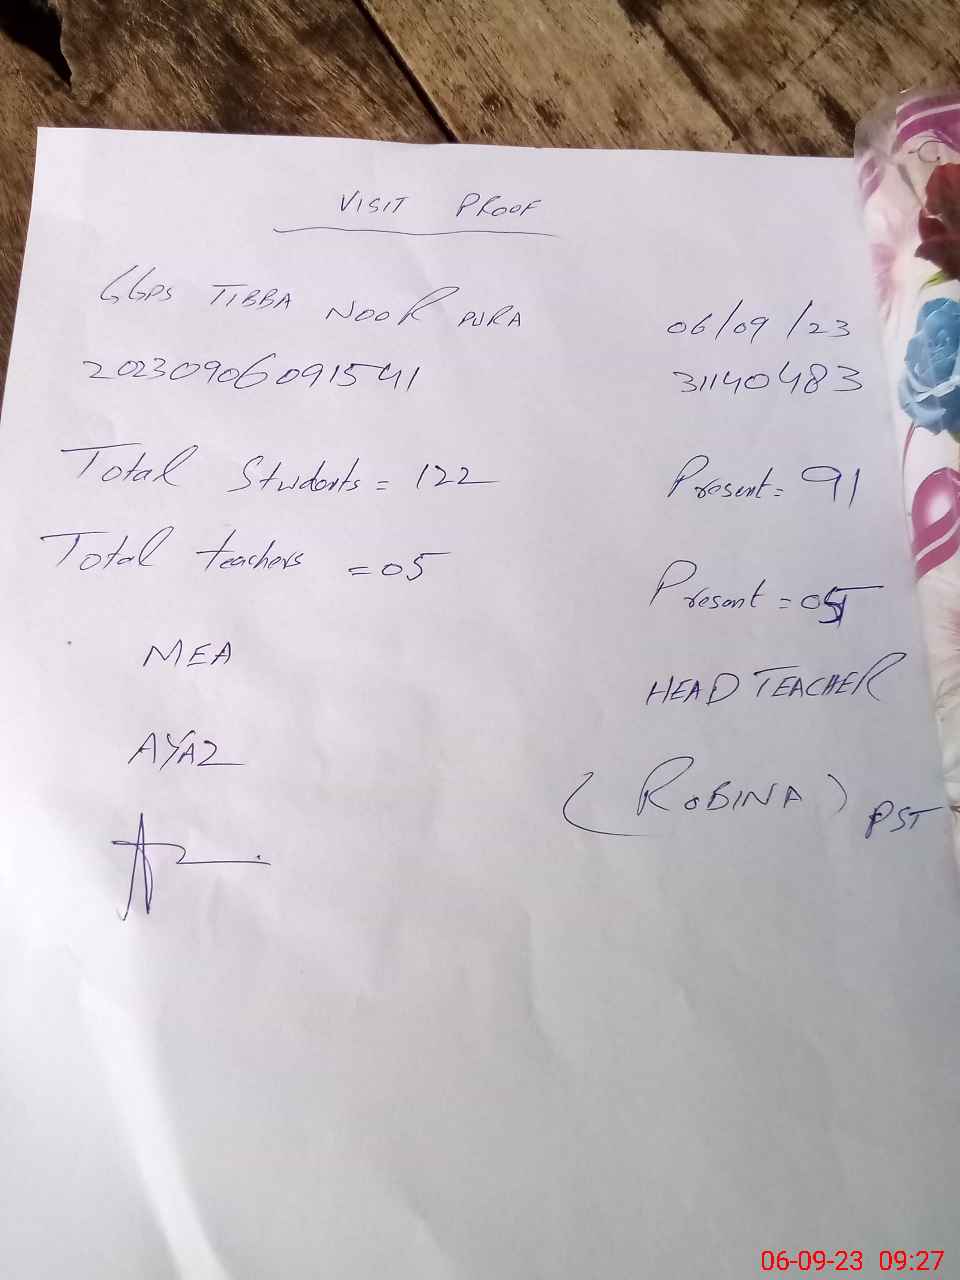 VISIT PROOF
GGPS TIBBA NOOR PURA 06/09/23
20230906091541 31140483
Total Students = 122 Present = 91
Total teachers = 05 Present = 05
MEA HEAD TEACHER
AYAZ (ROBINA) PST
06-09-23 09:27